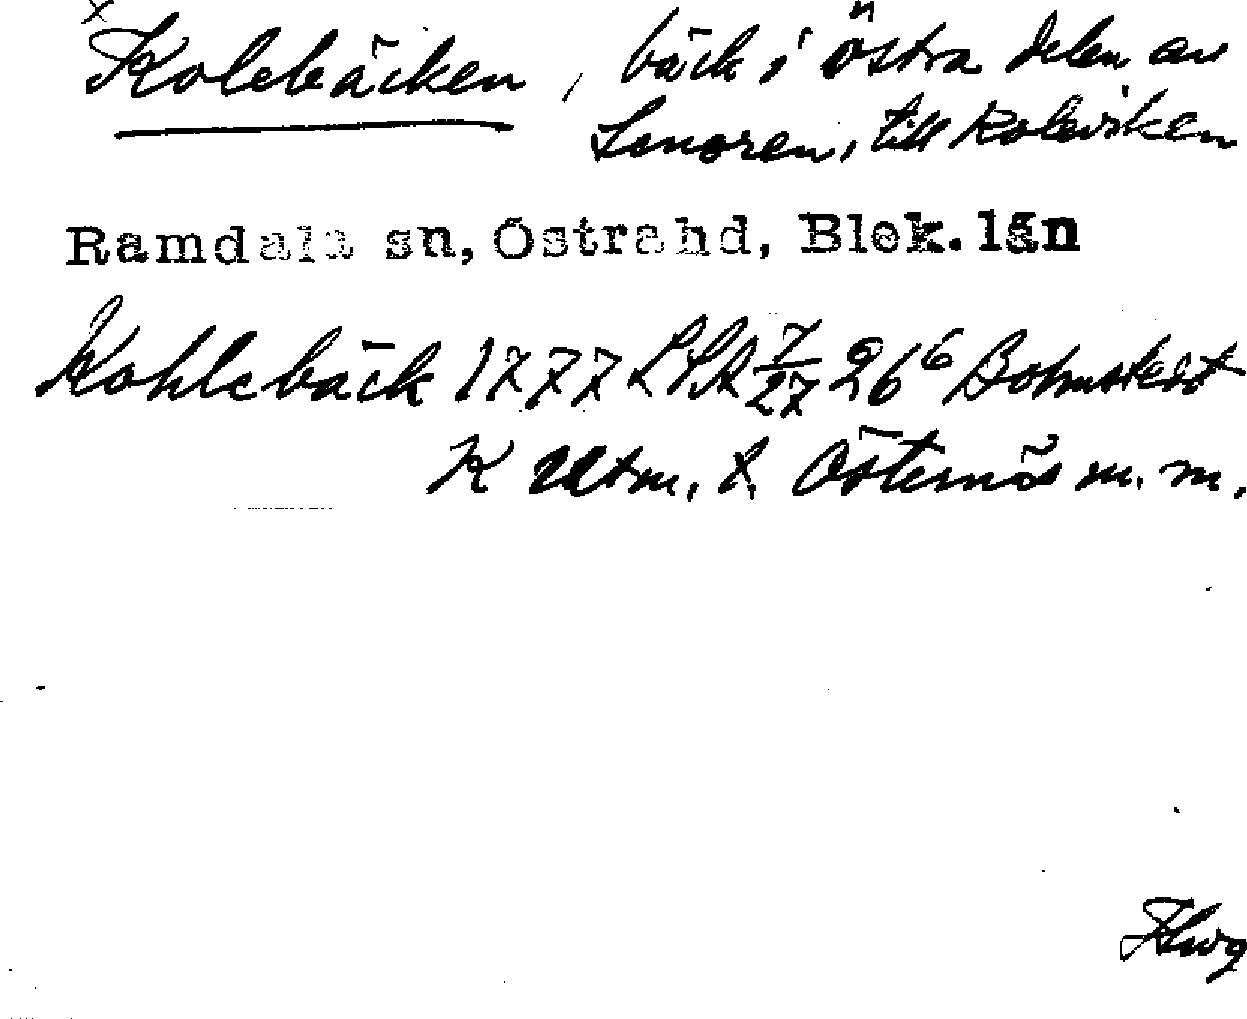 x
Kolebäcken, bäck i östra delen av
Senoren, till Koleviken
Ramdala sn, Östra hd, Blek. län
Kohlebäck 1777 LSA 7/27 26⁶ Bohmstedt
K Utm. t. Östernäs m. m.